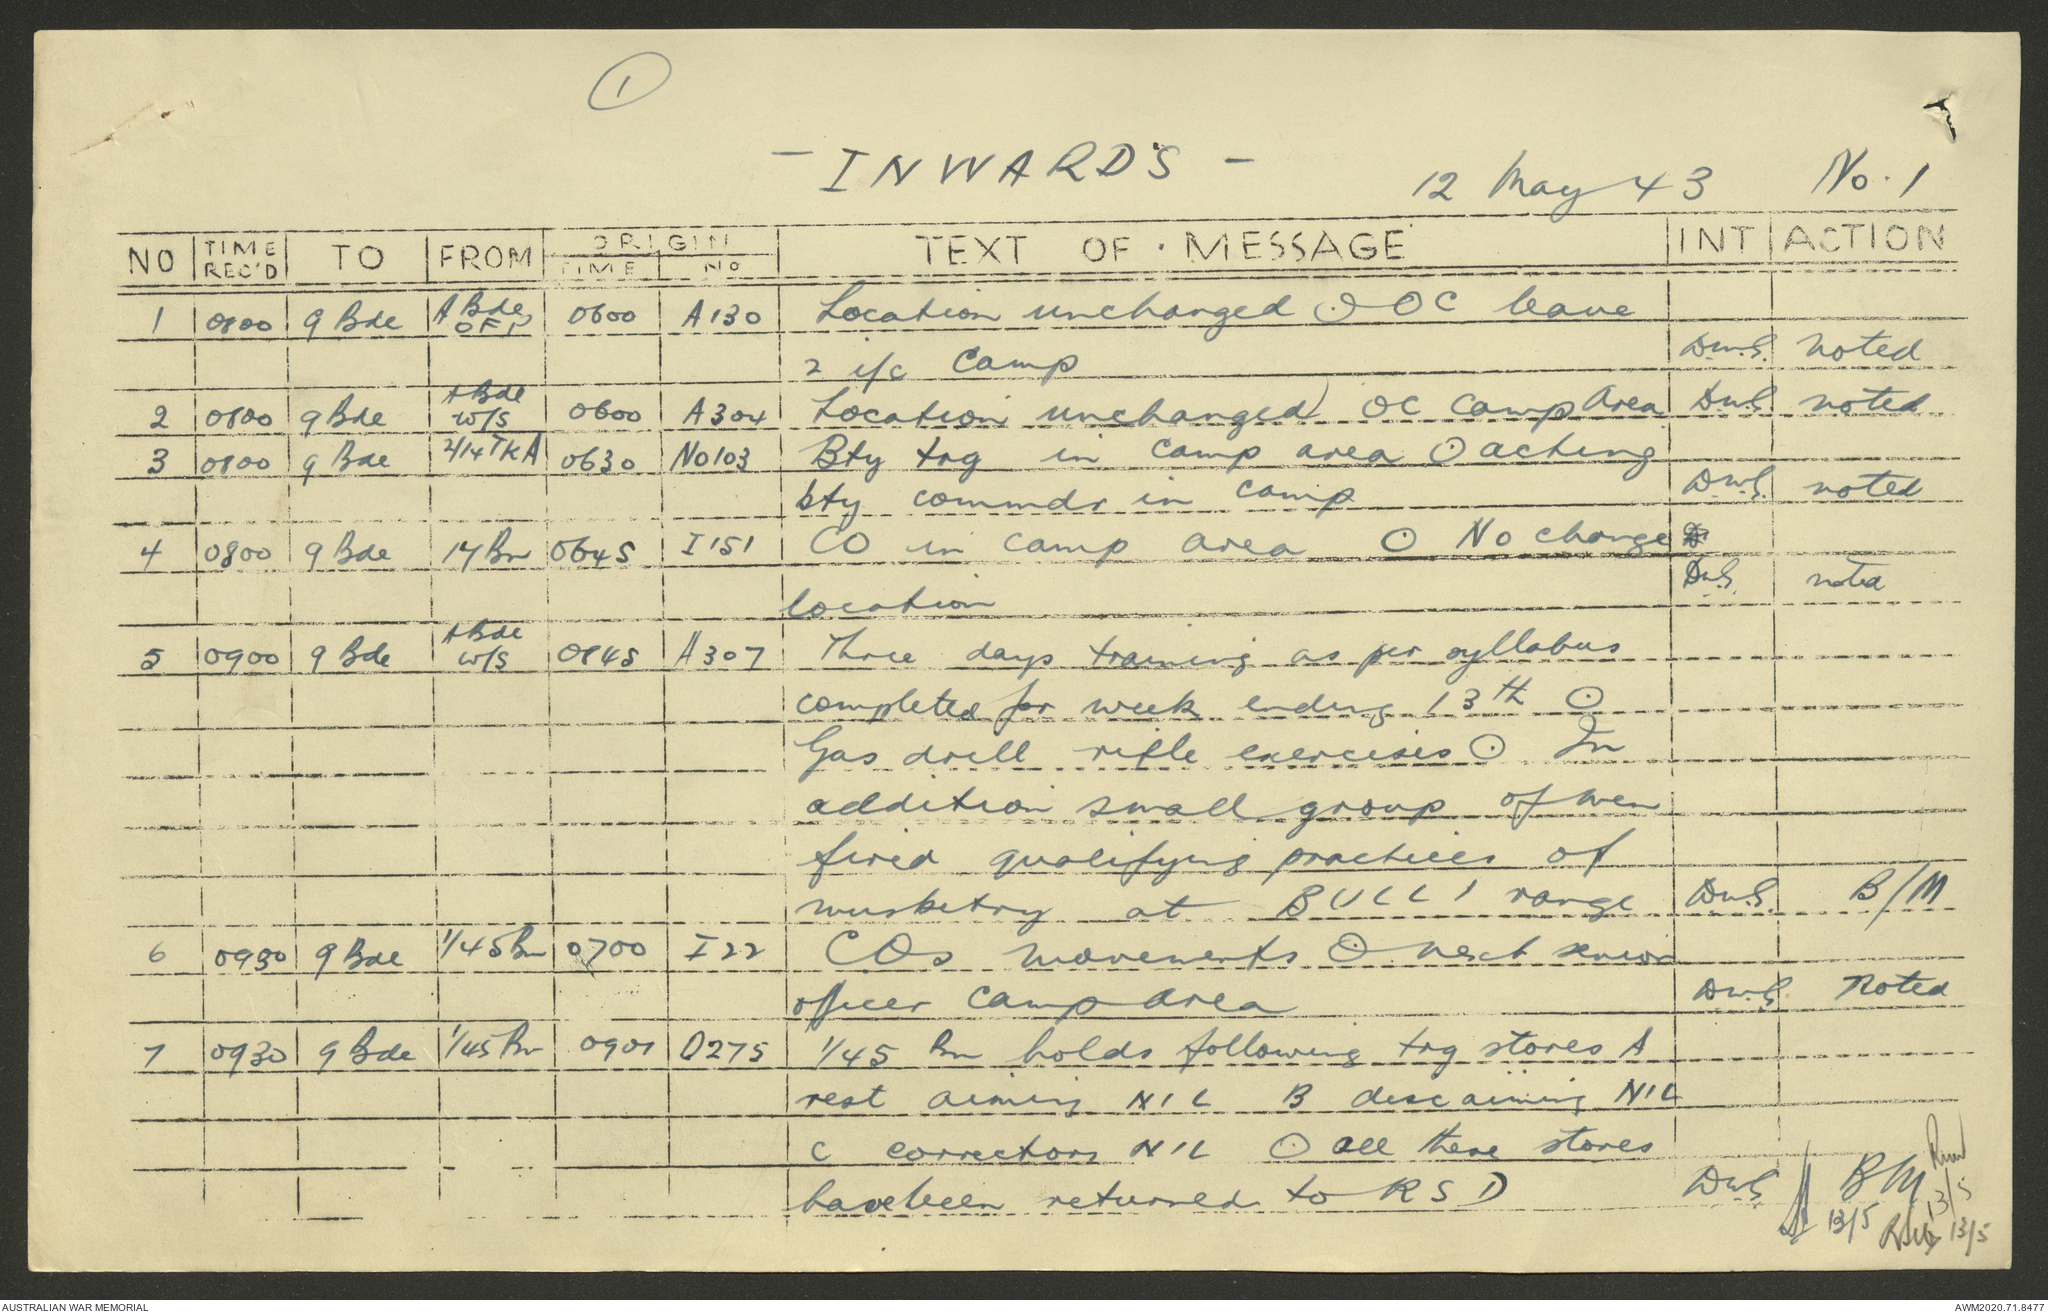 1
- INWARDS -
12 May 43 No. 1
NO TIME REC'D TO FROM ORIGIN TIME No TEXT OF MESSAGE INT ACTION
1 0800 9 Bde A Bde 0600 A130 Location unchanged ⊙ OC leave
2 i/c Camp DWS. noted
2 0800 9 Bde A Bde W/S 0600 A304 Location unchanged) OC Camp Area DWS noted
3 0800 9 Bde 2/14 TKA 0630 NO103 Bty trg in camp area ⊙ acting
bty commdr in camp DWS. noted
4 0800 9 Bde 17 Bn 0645 I151 CO in camp area ⊙ No change
location DWS. noted
5 0900 9 Bde A Bde W/S 0845 A307 Three days training as per syllabus
completed for week ending 13th ⊙
Gas drill rifle exercises ⊙ In
addition small group of men
fired qualifying practices of
musketry at BULLI range DWS. B/M
6 0930 9 Bde 1/45 Bn 0700 I22 COs movements ⊙ next senior
officer camp area DWS. Noted
7 0930 9 Bde 1/45 Bn 0901 O275 1/45 Bn holds following trg stores A
rest aiming NIL B disc aiming NIL
C correctors NIL ⊙ all these stores
have been returned to RSD DWS BM
13/5 13/5 13/5
AUSTRALIAN WAR MEMORIAL
AWM2020.71.8477